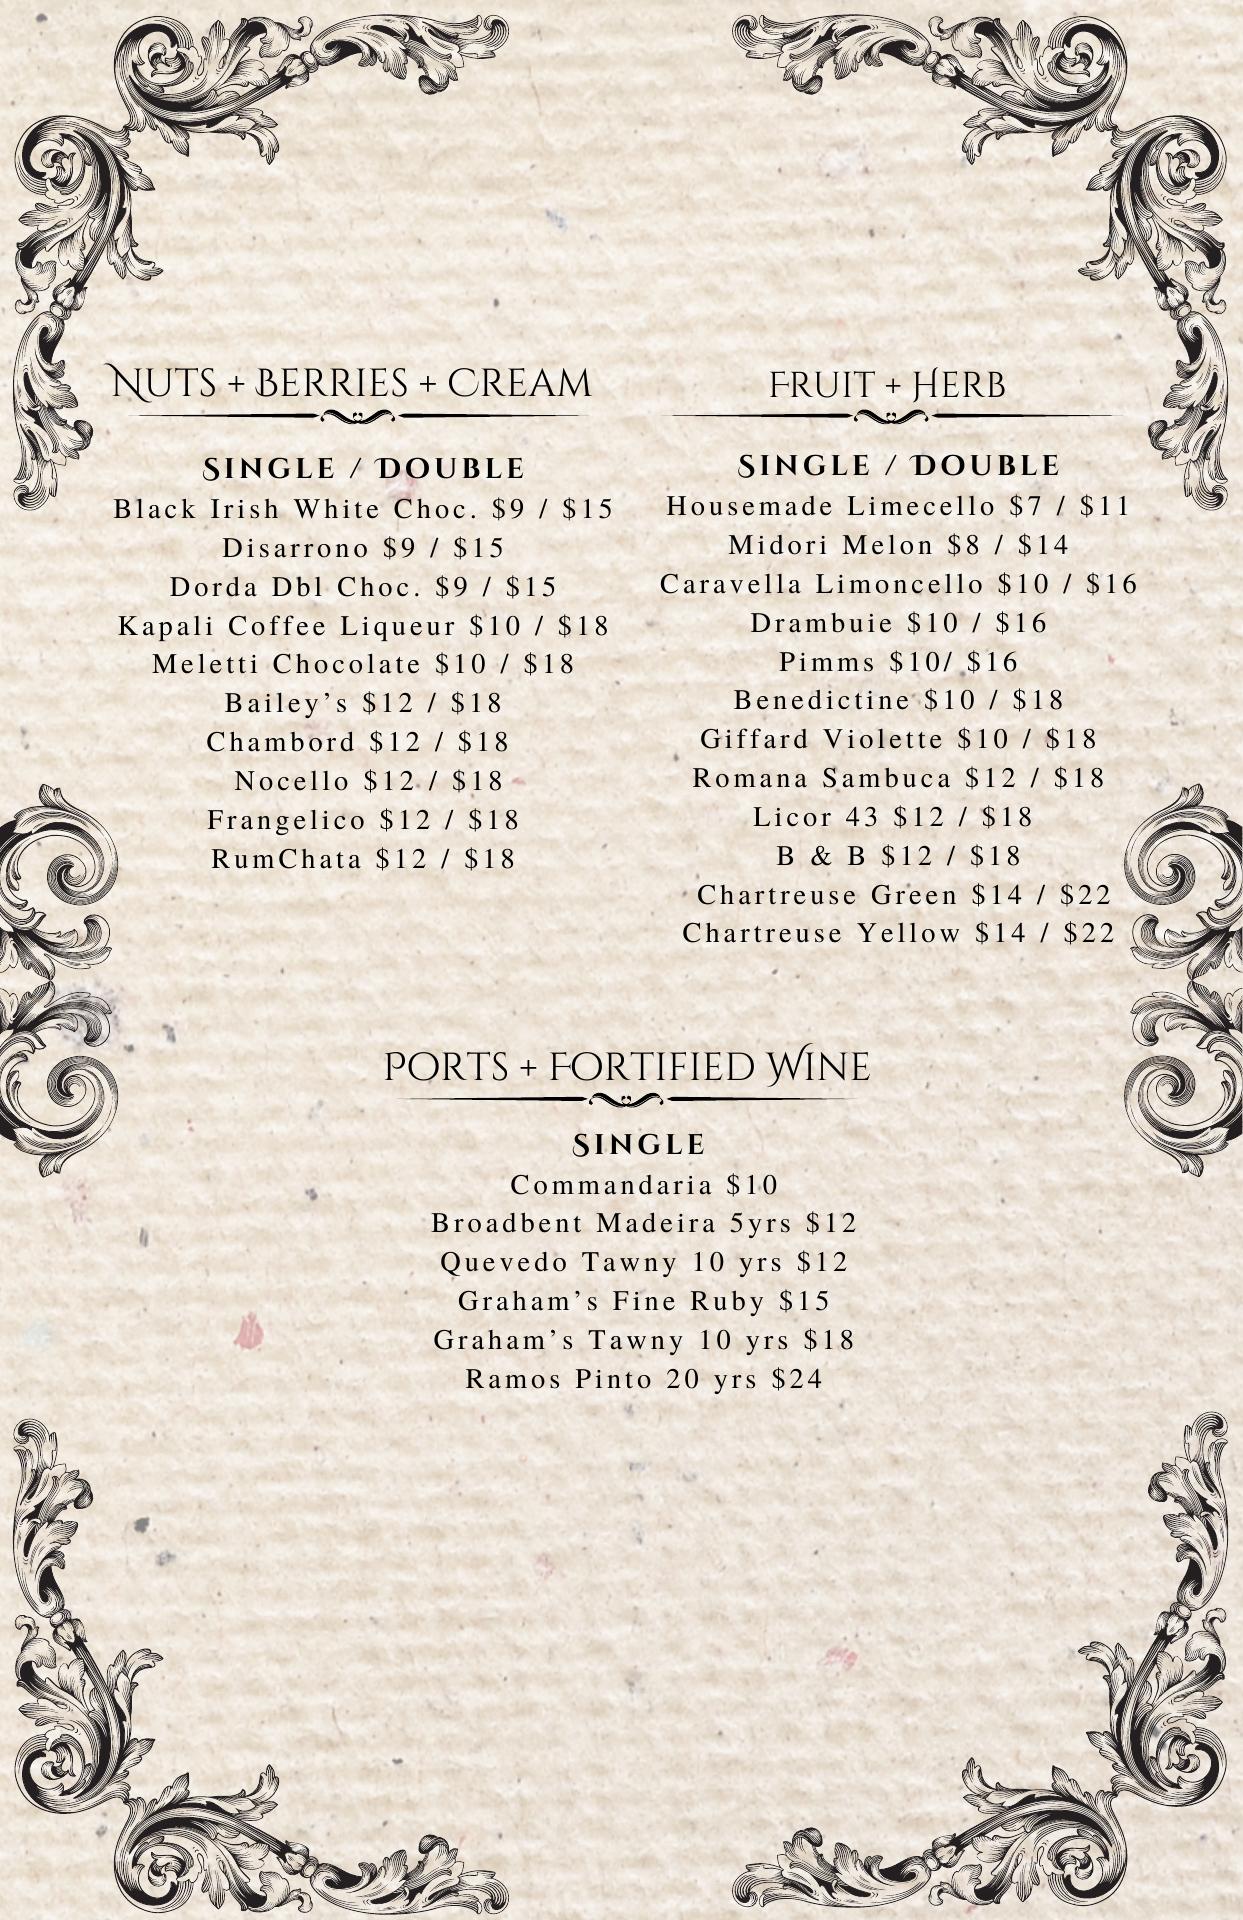 Nuts + Berries + Cream
Single / Double
Black Irish White Choc. $9 / $15
Disarrono $9 / $15
Dorda Dbl Choc. $9 / $15
Kapali Coffee Liqueur $10 / $18
Meletti Chocolate $10 / $18
Bailey’s $12 / $18
Chambord $12 / $18
Nocello $12 / $18
Frangelico $12 / $18
RumChata $12 / $18
Fruit + Herb
Single / Double
Housemade Limecello $7 / $11
Midori Melon $8 / $14
Caravella Limoncello $10 / $16
Drambuie $10 / $16
Pimms $10/ $16
Benedictine $10 / $18
Giffard Violette $10 / $18
Romana Sambuca $12 / $18
Licor 43 $12 / $18
B & B $12 / $18
Chartreuse Green $14 / $22
Chartreuse Yellow $14 / $22
Ports + Fortified Wine
Single
Commandaria $10
Broadbent Madeira 5yrs $12
Quevedo Tawny 10 yrs $12
Graham’s Fine Ruby $15
Graham’s Tawny 10 yrs $18
Ramos Pinto 20 yrs $24